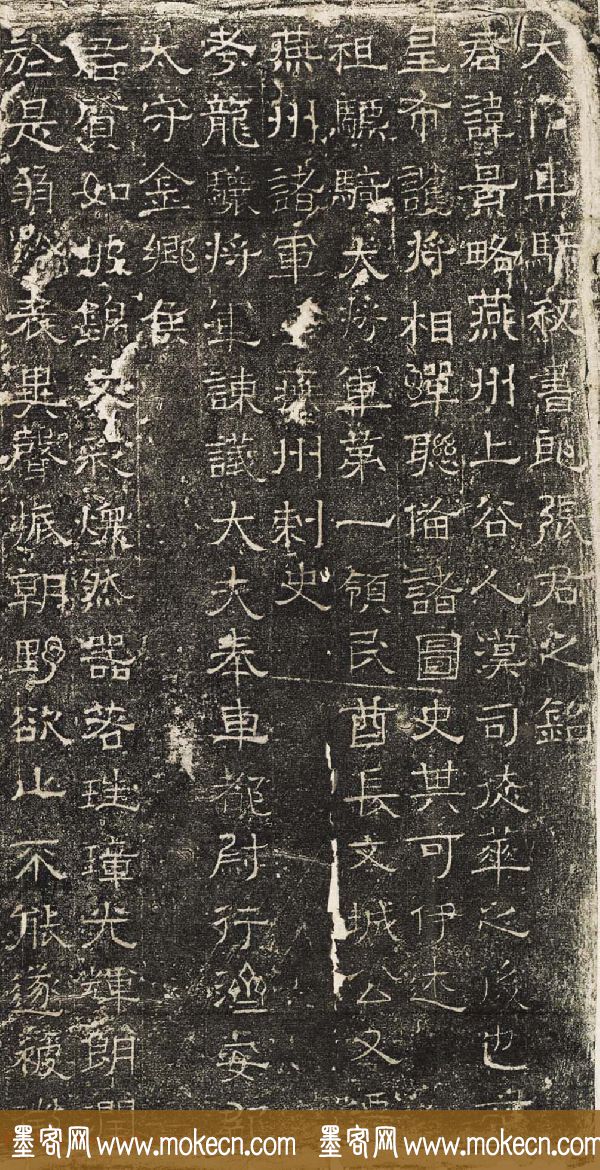 大隋車騎秘書郎張君之銘
君諱景略燕州上谷人漢司徒華之後也
皇布護將相蟬聯備諸圖史其可伊述
祖驃騎大將軍第一領民酋長文城公父
燕州諸軍 燕州刺史
考龍驤將軍諫議大夫奉車都尉行 安
太守金鄉侯
君質如披錦文彩爛然器若珪璋光輝朗
於是 表異聲振朝野欲止不能遂被
墨客网 www.mokecn.com 墨客网 www.mokecn.com